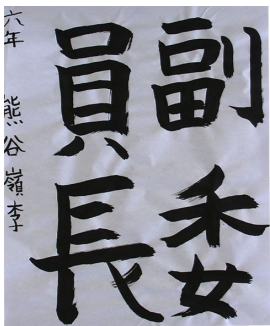 副委
員長
六年 熊谷嶺李